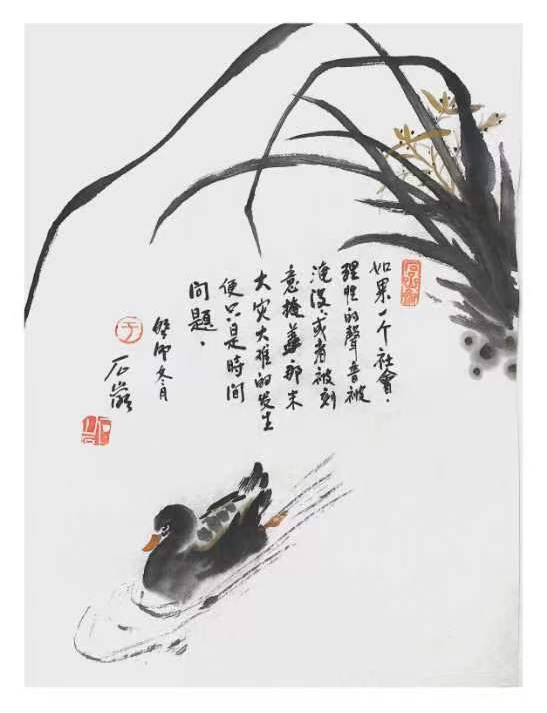 如果一个社會，
理性的聲音被
淹没，或者被刻
意掩蓋那末
大灾大难的发生
便只是時間
问題。
癸卯冬月
于
石巖